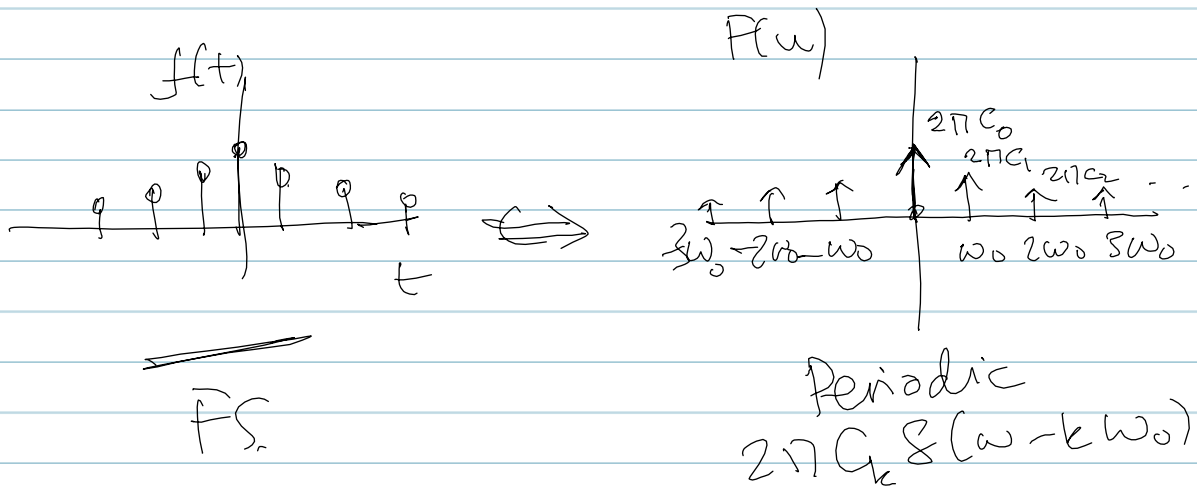 F(w)
f(t)
2πC₀
2πC₁
2πC₂
...
-3ω₀ -2ω₀ -ω₀ ω₀ 2ω₀ 3ω₀
t
FS.
Periodic
2πCₖ δ(ω-kω₀)